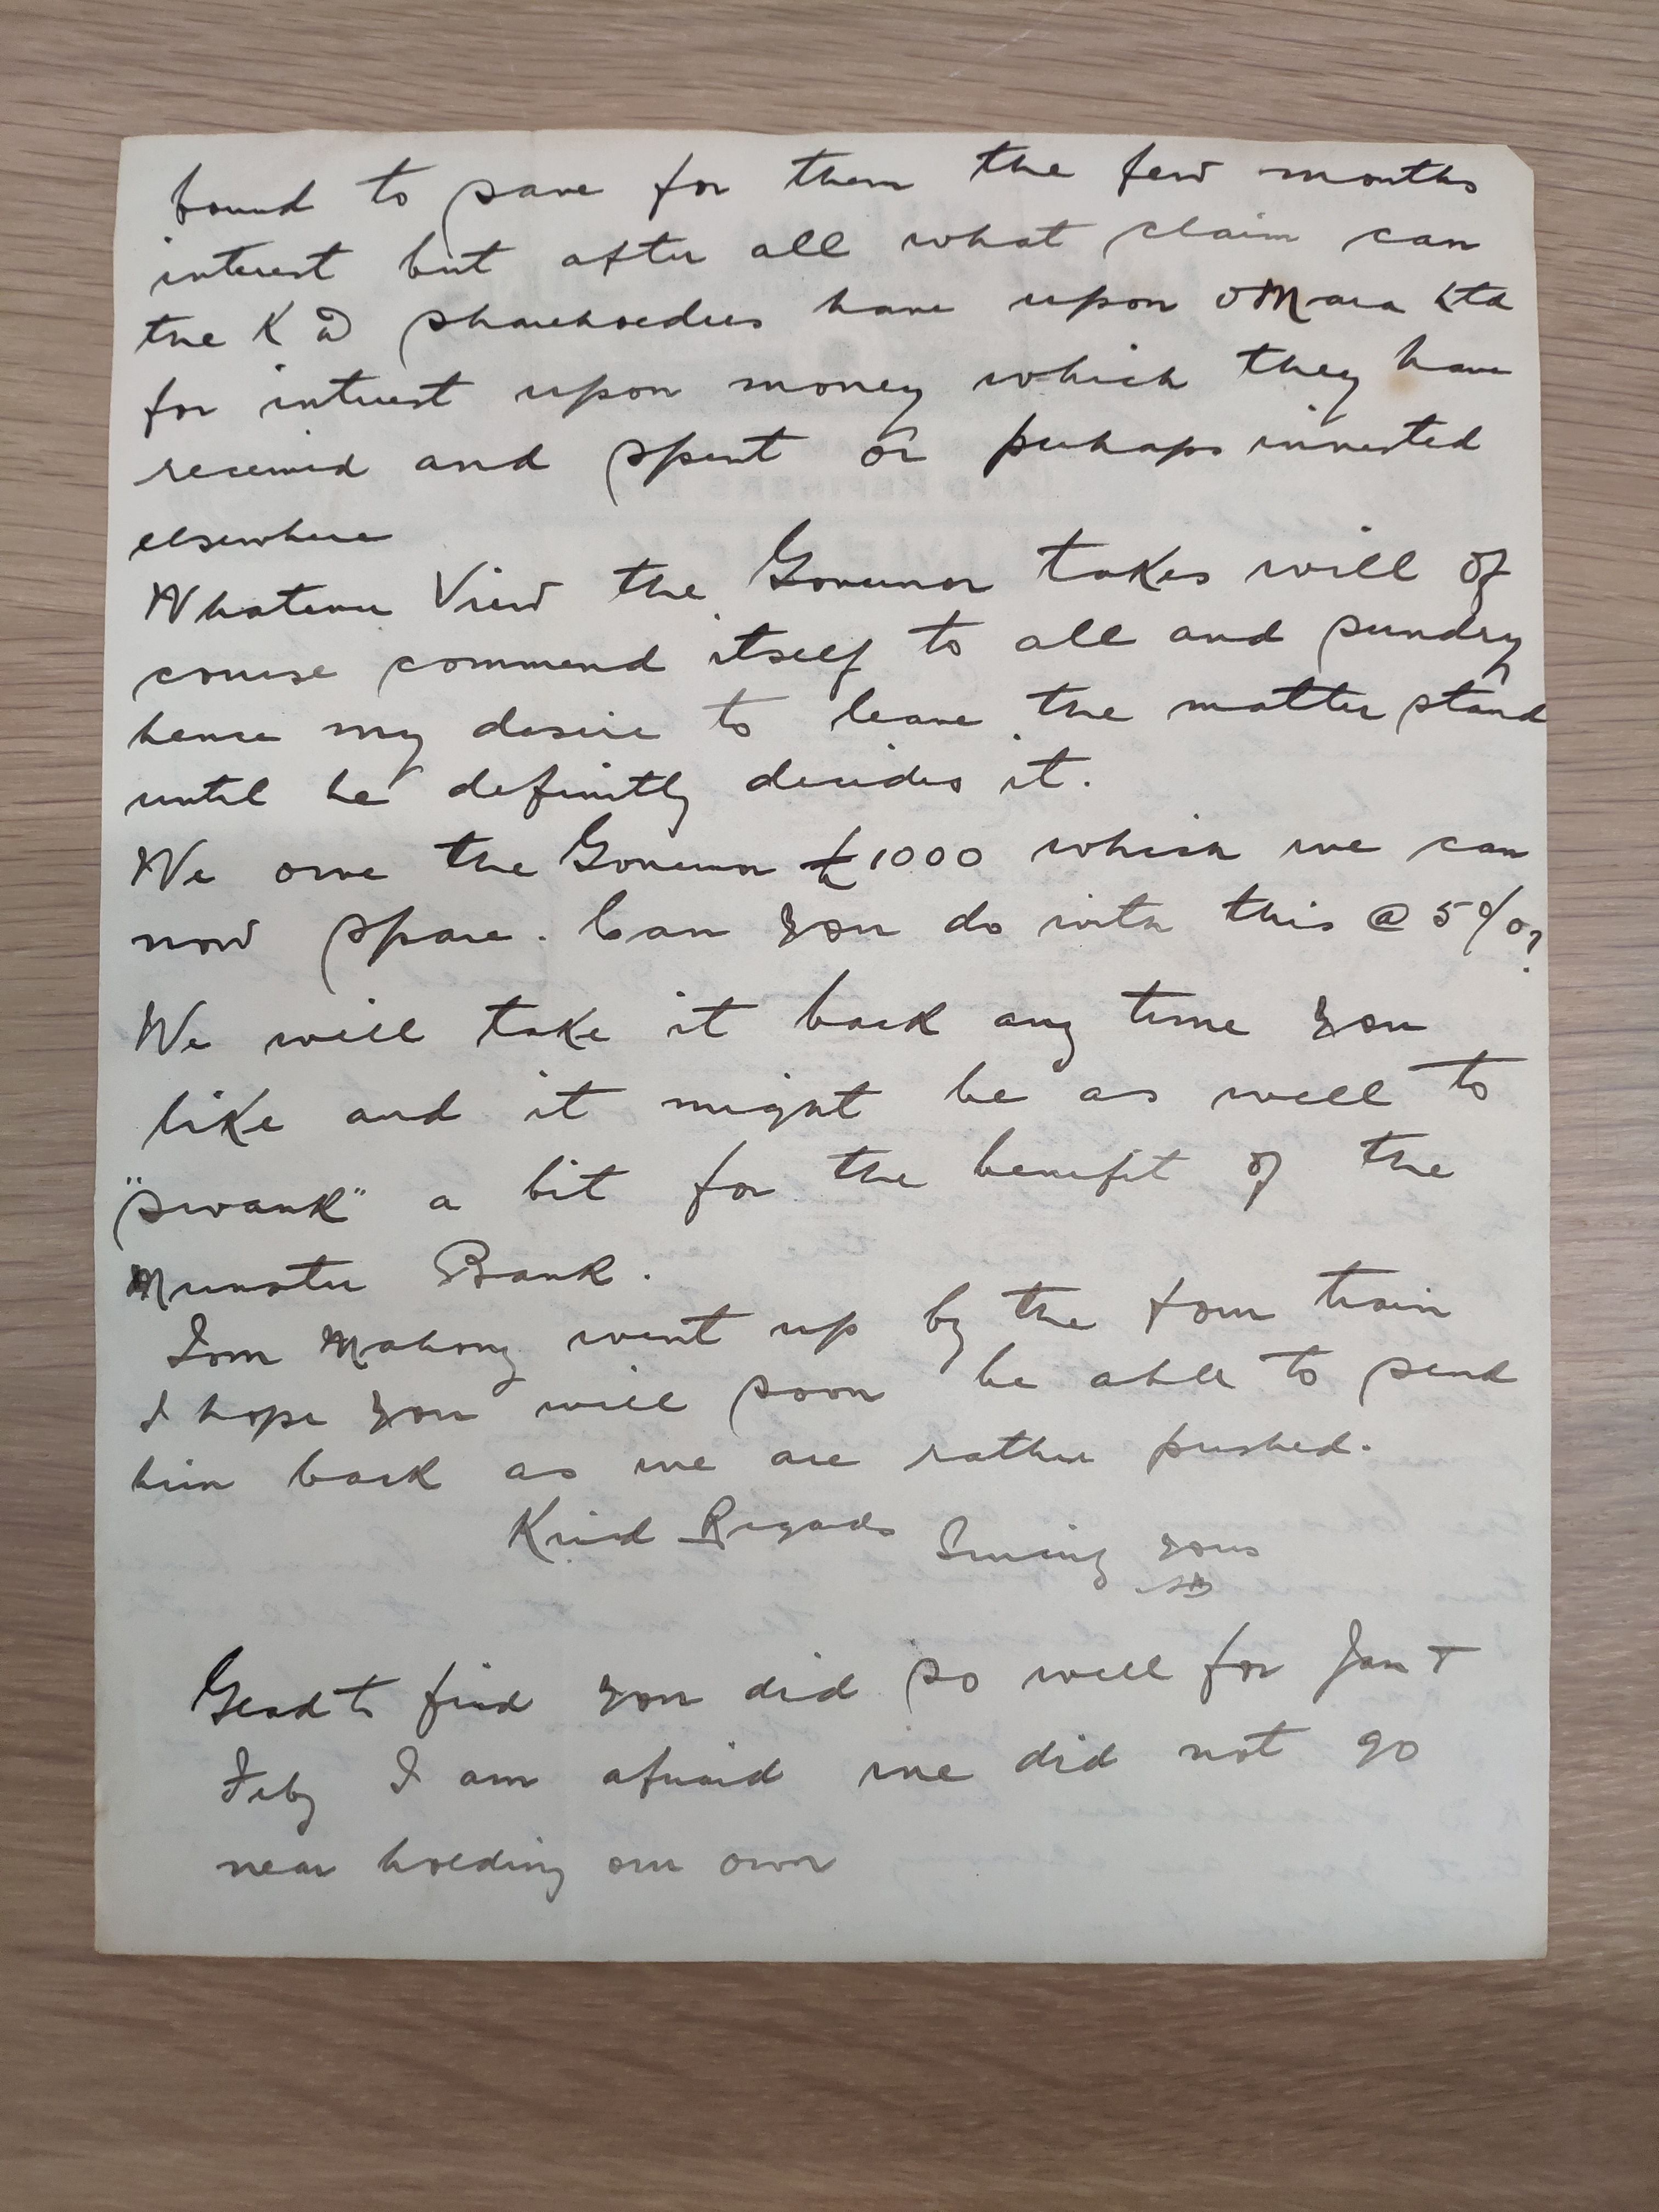 bound to save for them the few months
interest but after all what claim can
the K D shareholders have upon O'Mara Ltd
for interest upon money which they have
received and spent or perhaps invested
elsewhere
Whatever View the Governor takes will of
course commend itself to all and sundry
hence my desire to leave the matter stand
until he definitly decides it.
We owe the Governor £1000 which we can
now spare. Can you do with this @ 5%?
We will take it back any time you
like and it might be as well to
"swank" a bit for the benefit of the
Munster Bank.
Tom Mahony went up by the four train
I hope you will soon be able to send
him back as we are rather pushed.
Kind Regards
yours
Glad to find you did so well for Jan +
Feby I am afraid we did not go
near holding our own